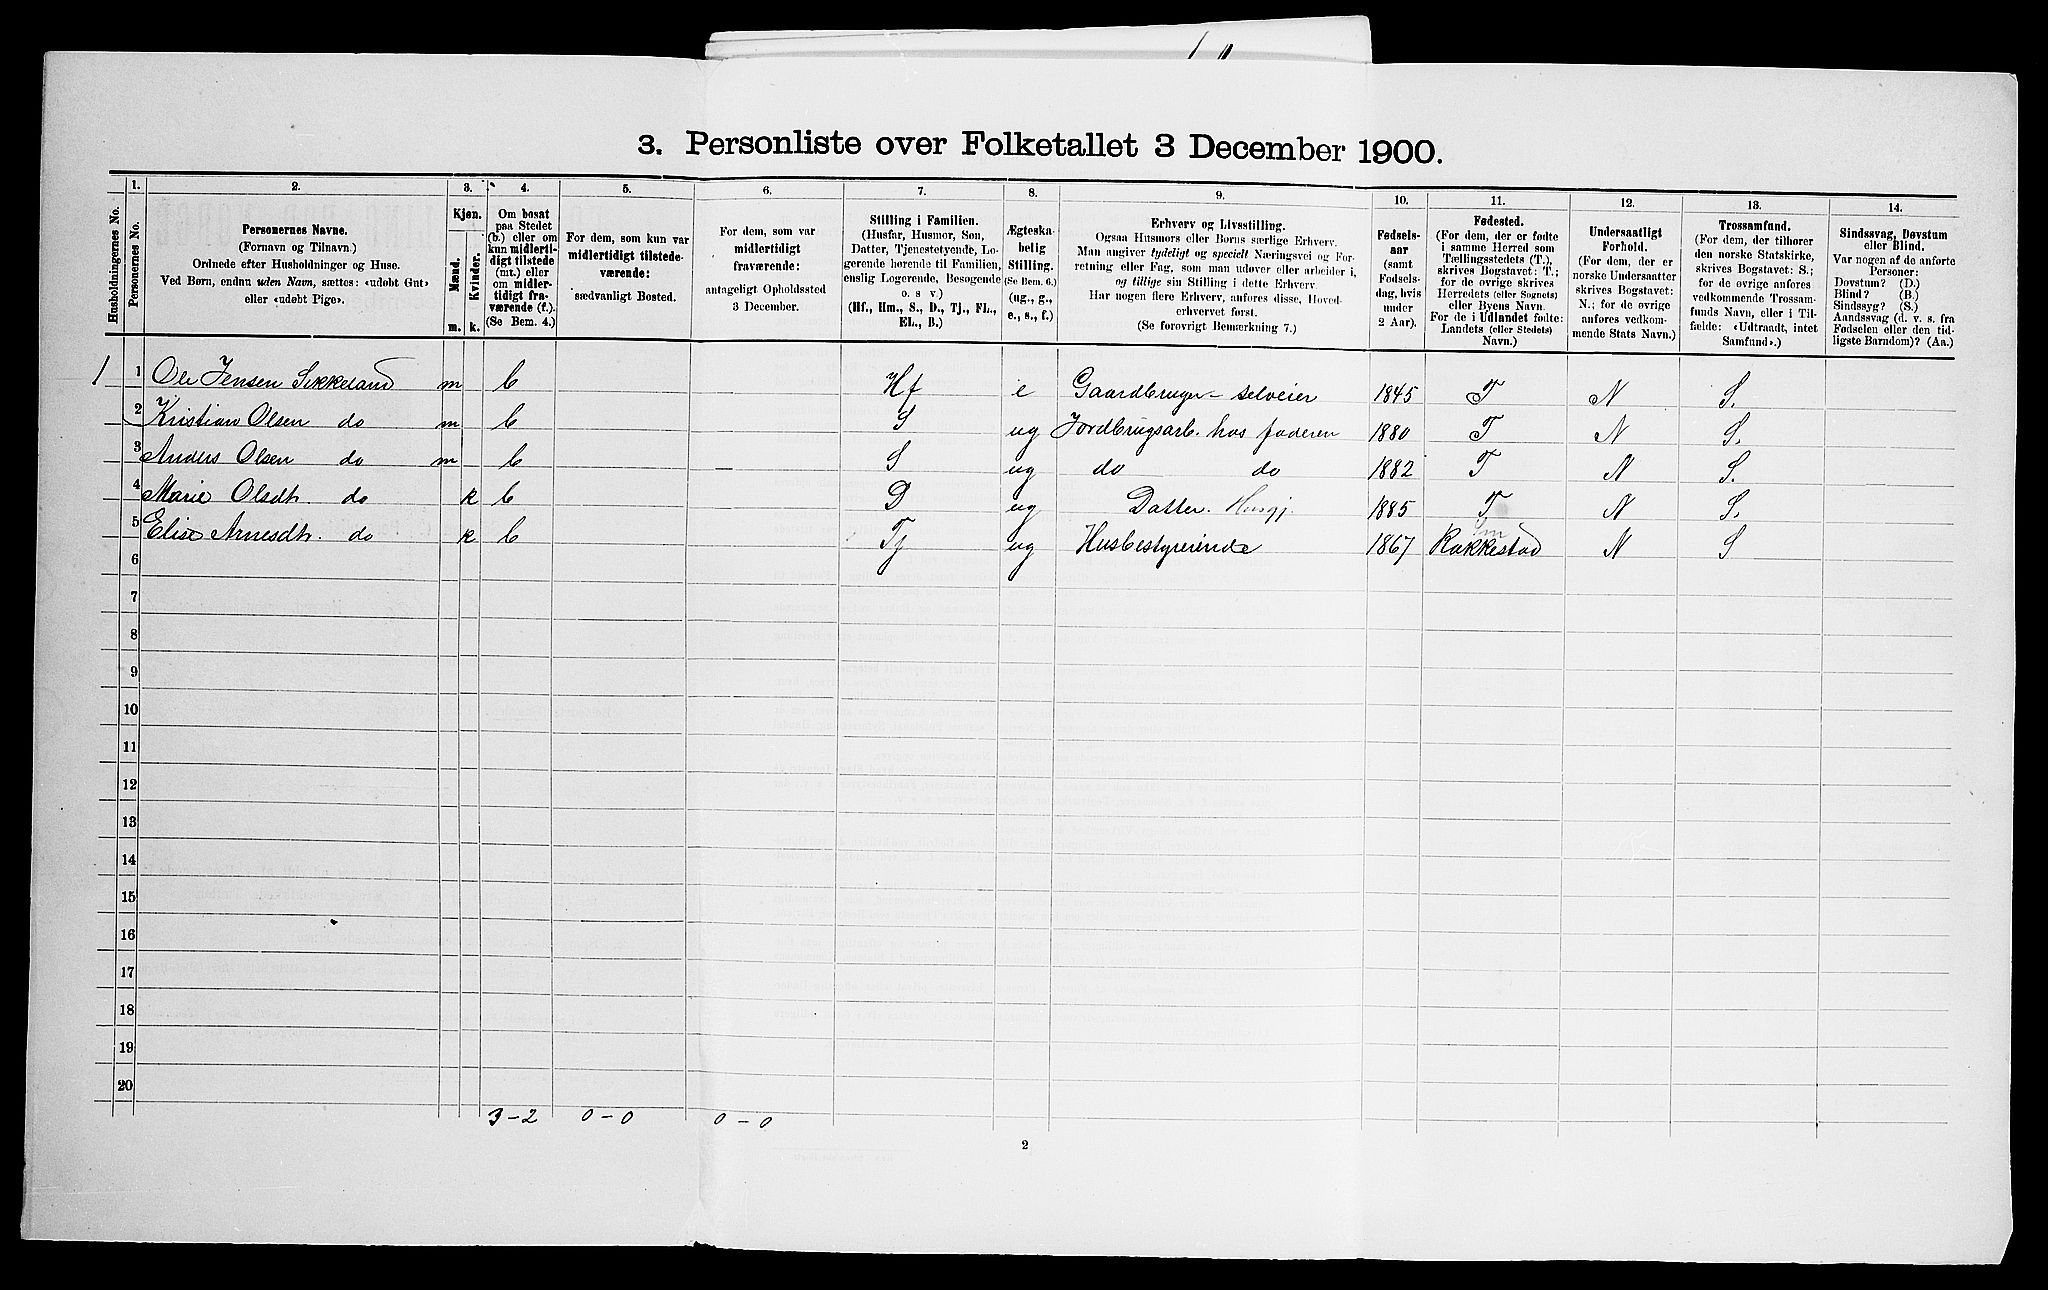 3. Personliste over Folketallet 3 December 1900.
Husholdningernes No.
1.
Personernes No.
2.
Personernes Navne.
(Fornavn og Tilnavn.)
Ordnede efter Husholdninger og Huse.
Ved Børn, endnu uden Navn, sættes: «udøbt Gut»
eller «udøbt Pige».
3.
Kjøn.
Mænd.
Kvinder.
m.
k.
4.
Om bosat
paa Stedet
(b.) eller om
kun midlerti-
digt tilstede
(mt.) eller
om midler-
tidigt fra-
værende (f.).
(Se Bem. 4.)
5.
For dem, som kun var
midlertidigt tilstede-
værende:
sædvanligt Bosted.
6.
For dem, som var
midlertidigt
fraværende:
antageligt Opholdssted
3 December.
7.
Stilling i Familien.
(Husfar, Husmor, Søn,
Datter, Tjenestetyende, Lo-
gerende hørende til Familien,
enslig Logerende, Besøgende
o. s v.)
(Hf., Hm., S., D., Tj., FL.,
EL., B.)
8.
Ægteska-
belig
Stilling.
(Se Bem. 6.)
(ug., g.,
e., s., f.)
9.
Erhverv og Livsstilling.
Ogsaa Husmors eller Børns særlige Erhverv.
Man angiver tydeligt og specielt Næringsvei og For-
retning eller Fag, som man udøver eller arbeider i,
og tillige sin Stilling i dette Erhverv.
Har nogen flere Erhverv, anføres disse, Hoved-
erhvervet først.
(Se forøvrigt Bemærkning 7.)
10.
Fødsels-
aar
(samt
Fødsels-
dag, hvis
under
2 Aar).
11.
Fødested.
(For dem, der er fødte
i samme Herred som
Tællingsstedets (T.),
skrives Bogstavet: T.;
for de øvrige skrives
Herredets (eller Sognets)
eller Byens Navn.
For de i Udlandet fødte:
Landets (eller Stedets)
Navn.)
12.
Undersaatligt
Forhold.
(For dem, der er
norske Undersaatter
skrives Bogstavet:
N.; for de øvrige
anføres vedkom-
mende Stats Navn.)
13.
Trossamfund.
(For dem, der tilhører
den norske Statskirke,
skrives Bogstavet: S.;
for de øvrige anføres
vedkommende Trossam-
funds Navn, eller i Til-
fælde: «Udtraadt, intet
Samfund».)
14.
Sindssvag, Døvstum
eller Blind.
Var nogen af de anførte
Personer:
Døvstum? (D.)
Blind? (B.)
Sindssyg? (S.)
Aandssvag (d. v. s. fra
Fødselen eller den tid-
ligste Barndom)? (Aa.)
1 1 Ole Jensen Sikkeland m b Hf e Gaardbruger – selveier 1845 T N S.
2 Kristian Olsen do m b S ug Jordbrugsarb. hos faderen 1880 T N S.
3 Anders Olsen do m b S ug do do 1882 T N S.
4 Marie Olsdt. do k b D ug Datter. Husgj. 1885 T N S.
5 Elise Arnesdt. do k b Tj ug Husbestyrerinde 1867 Rakkestad N S
6
7
8
9
10
11
12
13
14
15
16
17
18
19
20
3 – 2 0 – 0 0 – 0
2